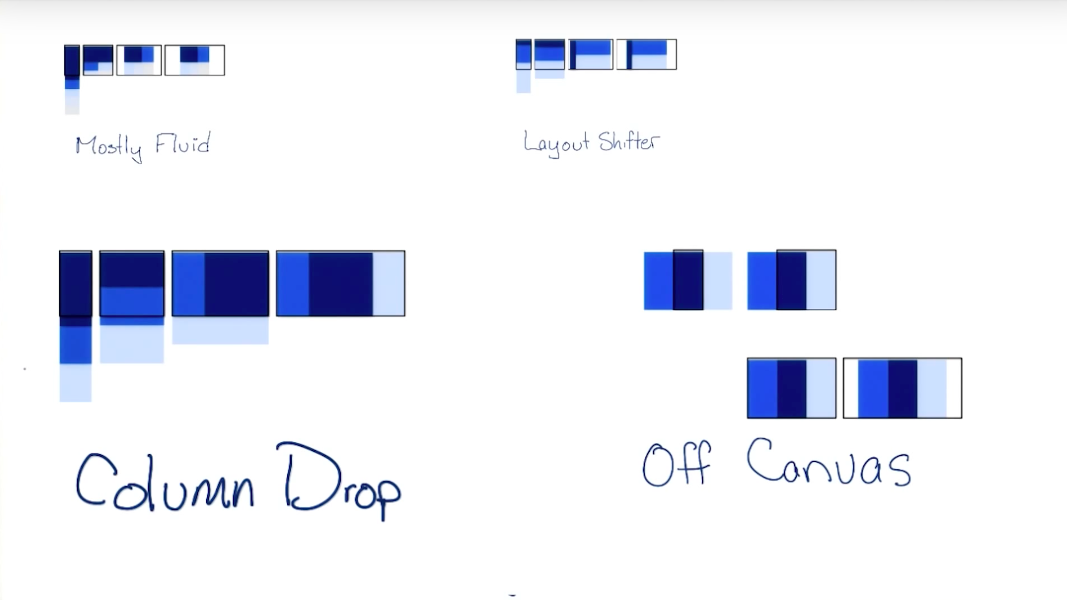 Mostly Fluid
Layout Shifter
Column Drop
Off Canvas